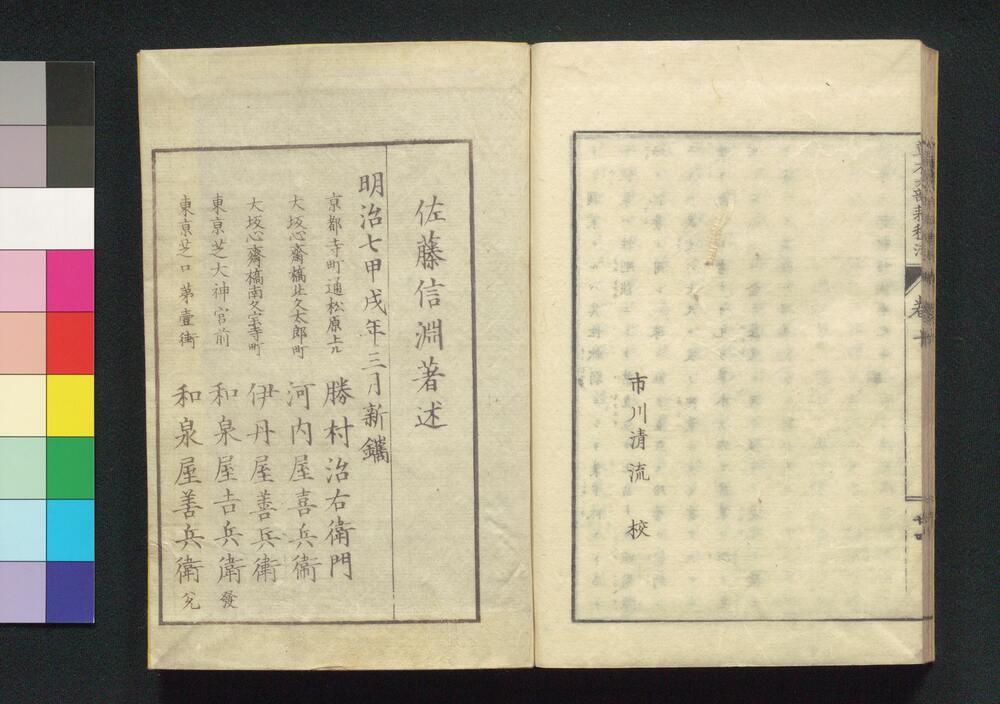 草木六部耕種法
卷二十
市川清流　校
佐藤信淵著述
明治七甲戌年三月新鐫
京都寺町通松原上ル　勝村治右衛門
大坂心齋橋北久太郎町　河内屋喜兵衛
大坂心齋橋南久宝寺町　伊丹屋善兵衛
東京芝大神宮前　和泉屋吉兵衛　發
東京芝口第壹街　和泉屋善兵衛　兌